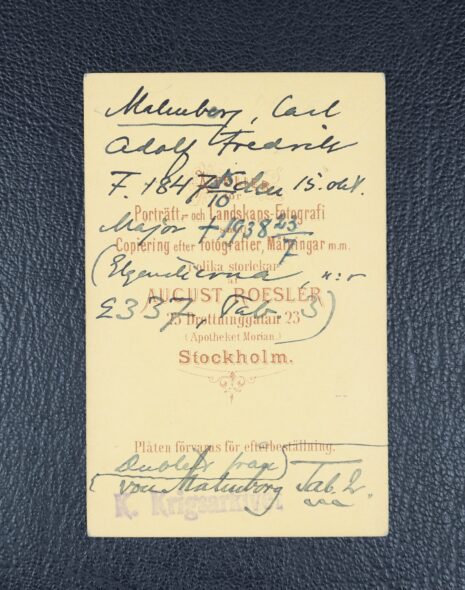 Malmborg, Carl
Adolf Fredrik
F. 1847 15/10 den 15. okt.
ATELIER
för
Porträtt- och Landskaps-Fotografi
Major + 1938 23/7
Copiering efter fotografier, Målningar m.m.
i olika storlekar
(Elgenstierna, n:r
af
AUGUST ROESLER
2337, Tab 3)
23 Drottninggatan 23
(Apotheket Morian)
Stockholm.
Plåten förvaras för efterbeställning.
Dublett från
(von Malmborg Tab. 2.
K. Krigsarkivet.